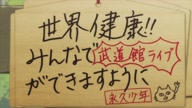 世界健康!!
みんなで武道館ライブ
ができますように
永久少年